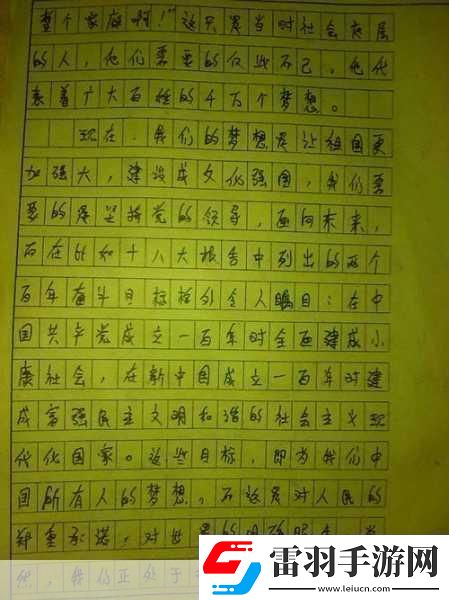 整个家庭啊！”这只是当时社会底层
的人，他们需要的仅此而已。他代
表着广大百姓的千万个梦想。
现在，我们的梦想是让祖国更
加强大，建设成文化强国，我们需
要的是坚持党的领导，面向未来，
而在比如十八大报告中列出的两个
百年奋斗目标格外令人瞩目：在中
国共产党成立一百年时全面建成小
康社会，在新中国成立一百年时建
成富强民主文明和谐的社会主义现
代化国家。这些目标，即为我们中
国所有人的梦想，不这是对人民的
郑重承诺，对世界的
然，我们正处于
雷羽手游网
www.leiucn.com